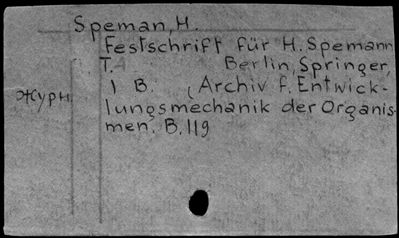 Speman, H.
Festschrift für H. Spemann
T. Berlin, Springer,
1 B. (Archiv f. Entwick-
журн.
lungsmechanik der Organis-
men. B. 119